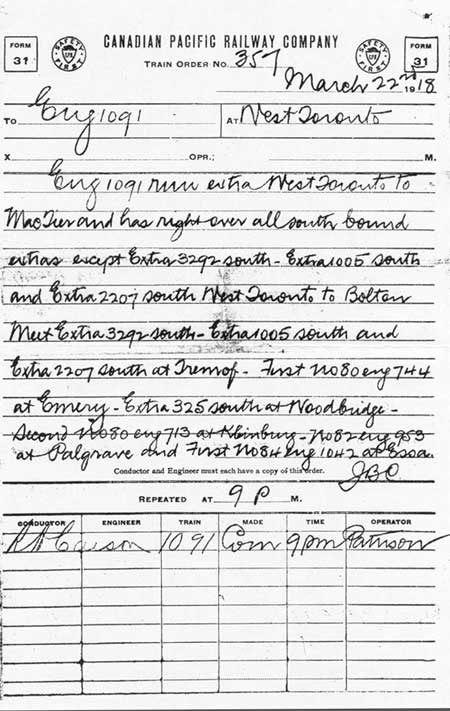 FORM 31
SAFETY FIRST
CANADIAN PACIFIC RAILWAY COMPANY
SAFETY FIRST
FORM 31
TRAIN ORDER No. 357
March 22nd 1918
To Eng 1091 At West Toronto
X OPR.; M.
Eng 1091 run extra West Toronto to
MacTier and has right over all south bound
extras except Extra 3292 south - Extra 1005 south
and Extra 2207 south West Toronto to Bolton
Meet Extra 3292 south - Extra 1005 south and
Extra 2207 south at - First No 80 eng 744
at Emery - Extra 325 south at Woodbridge -
Second No 80 eng 713 at Kleinburg - No 82 eng 953
at Palgrave and First No 84 eng 1042 at Essa.
Conductor and Engineer must each have a copy of this order.
REPEATED AT 9 P M.
CONDUCTOR ENGINEER TRAIN MADE TIME OPERATOR
1091 Com 9pm